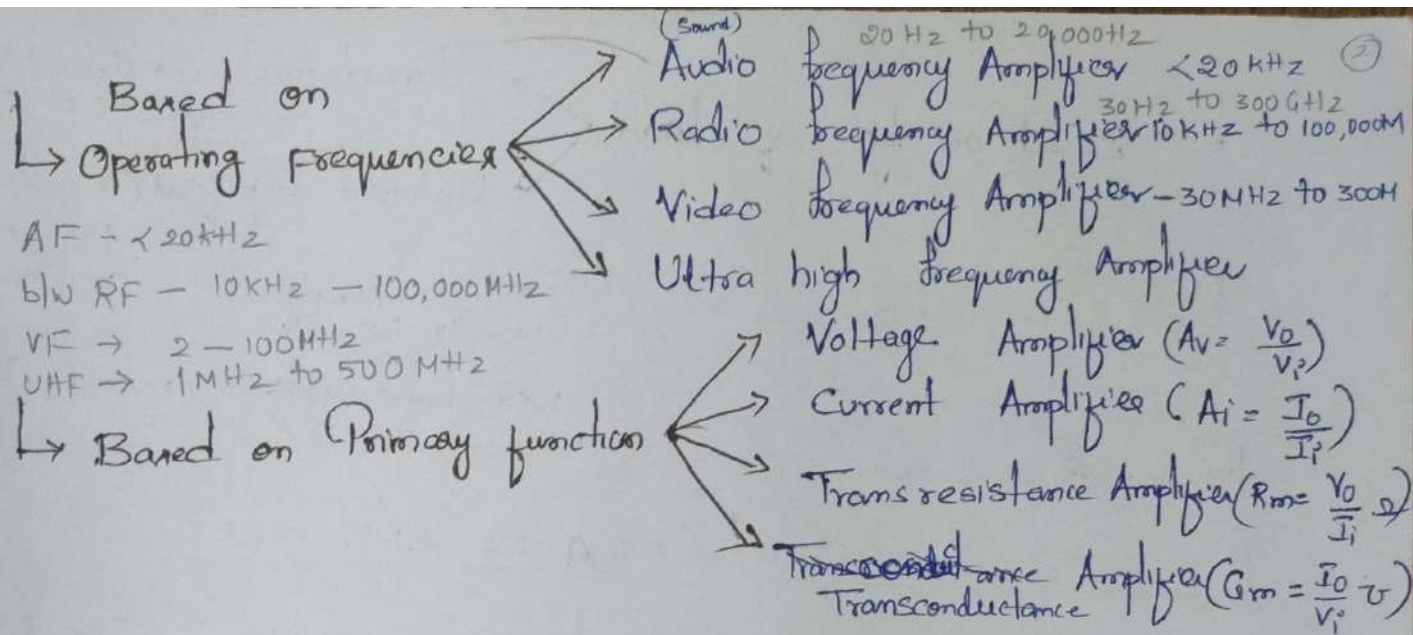 (Sound)
20 Hz to 20,000Hz
Audio frequency Amplifier <20 kHz
2
Based on
→ Operating Frequencies
30Hz to 300GHz
Radio frequency Amplifier 10 kHz to 100,000M
Video frequency Amplifier - 30MHz to 300M
Ultra high frequency Amplifier
AF - <20kHz
b/w RF - 10KHz - 100,000MHz
VF → 2 - 100MHz
UHF → 1MHz to 500MHz
→ Based on Primary function
Voltage Amplifier (Av = Vo/Vi)
Current Amplifier (Ai = Io/Ii)
Trans resistance Amplifier (Rm = Vo/Ii Ω)
Transconductance Amplifier (Gm = Io/Vi ℧)